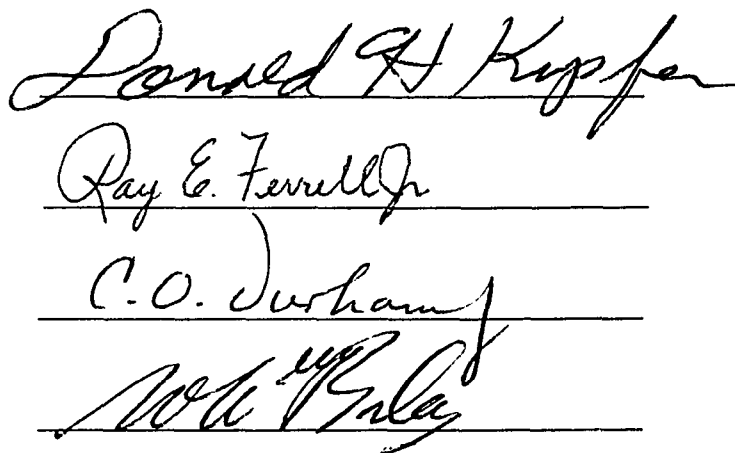 Donald H Kupfer
Ray E. Ferrell Jr
C. O. Durham Jr